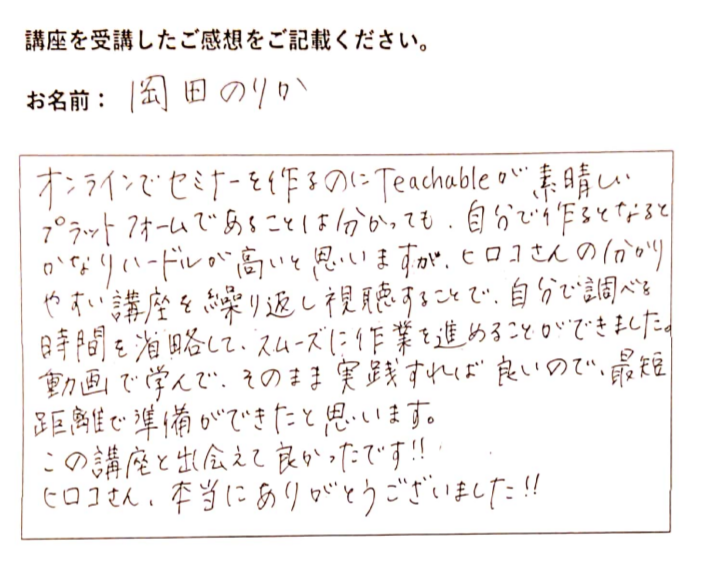 講座を受講したご感想をご記載ください。
お名前： 岡田のりか
オンラインでセミナーを作るのにTeachableが素晴しい
プラットフォームであることは分かっても、自分で作るとなると
かなりハードルが高いと思いますが、ヒロコさんの分かり
やすい講座を繰り返し視聴することで、自分で調べる
時間を省略して、スムーズに作業を進めることができました。
動画で学んで、そのまま実践すれば良いので、最短
距離で準備ができたと思います。
この講座と出会えて良かったです!!
ヒロコさん、本当にありがとうございました!!